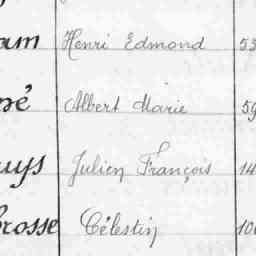 am Henri Edmond 53
pé Albert Marie 59
uys Julien François 14
brosse Célestin 10